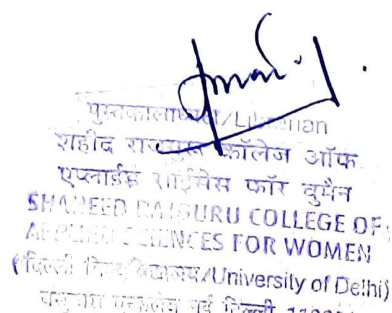 पुस्तकालाध्यक्ष/Librarian
शहीद राजगुरु कॉलेज ऑफ
एप्लाईड साईंसेस फॉर वुमैन
SHAHEED RAJGURU COLLEGE OF
APPLIED SCIENCES FOR WOMEN
(दिल्ली विश्वविद्यालय/University of Delhi)
वसुन्धरा एनक्लेव नई दिल्ली